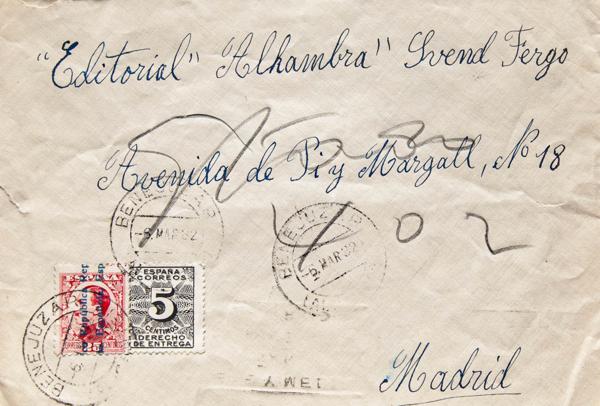 "Editorial" Alhambra" Svend Fergo
Avenida de Pi y Margall, Nº 18
402
BENEJUZAR
-8 MAR 32
BENEJUZAR
MAR 32
República Española
25
ESPAÑA
CORREOS
5
CENTIMOS
DERECHO
DE ENTREGA
BENEJUZAR
Madrid